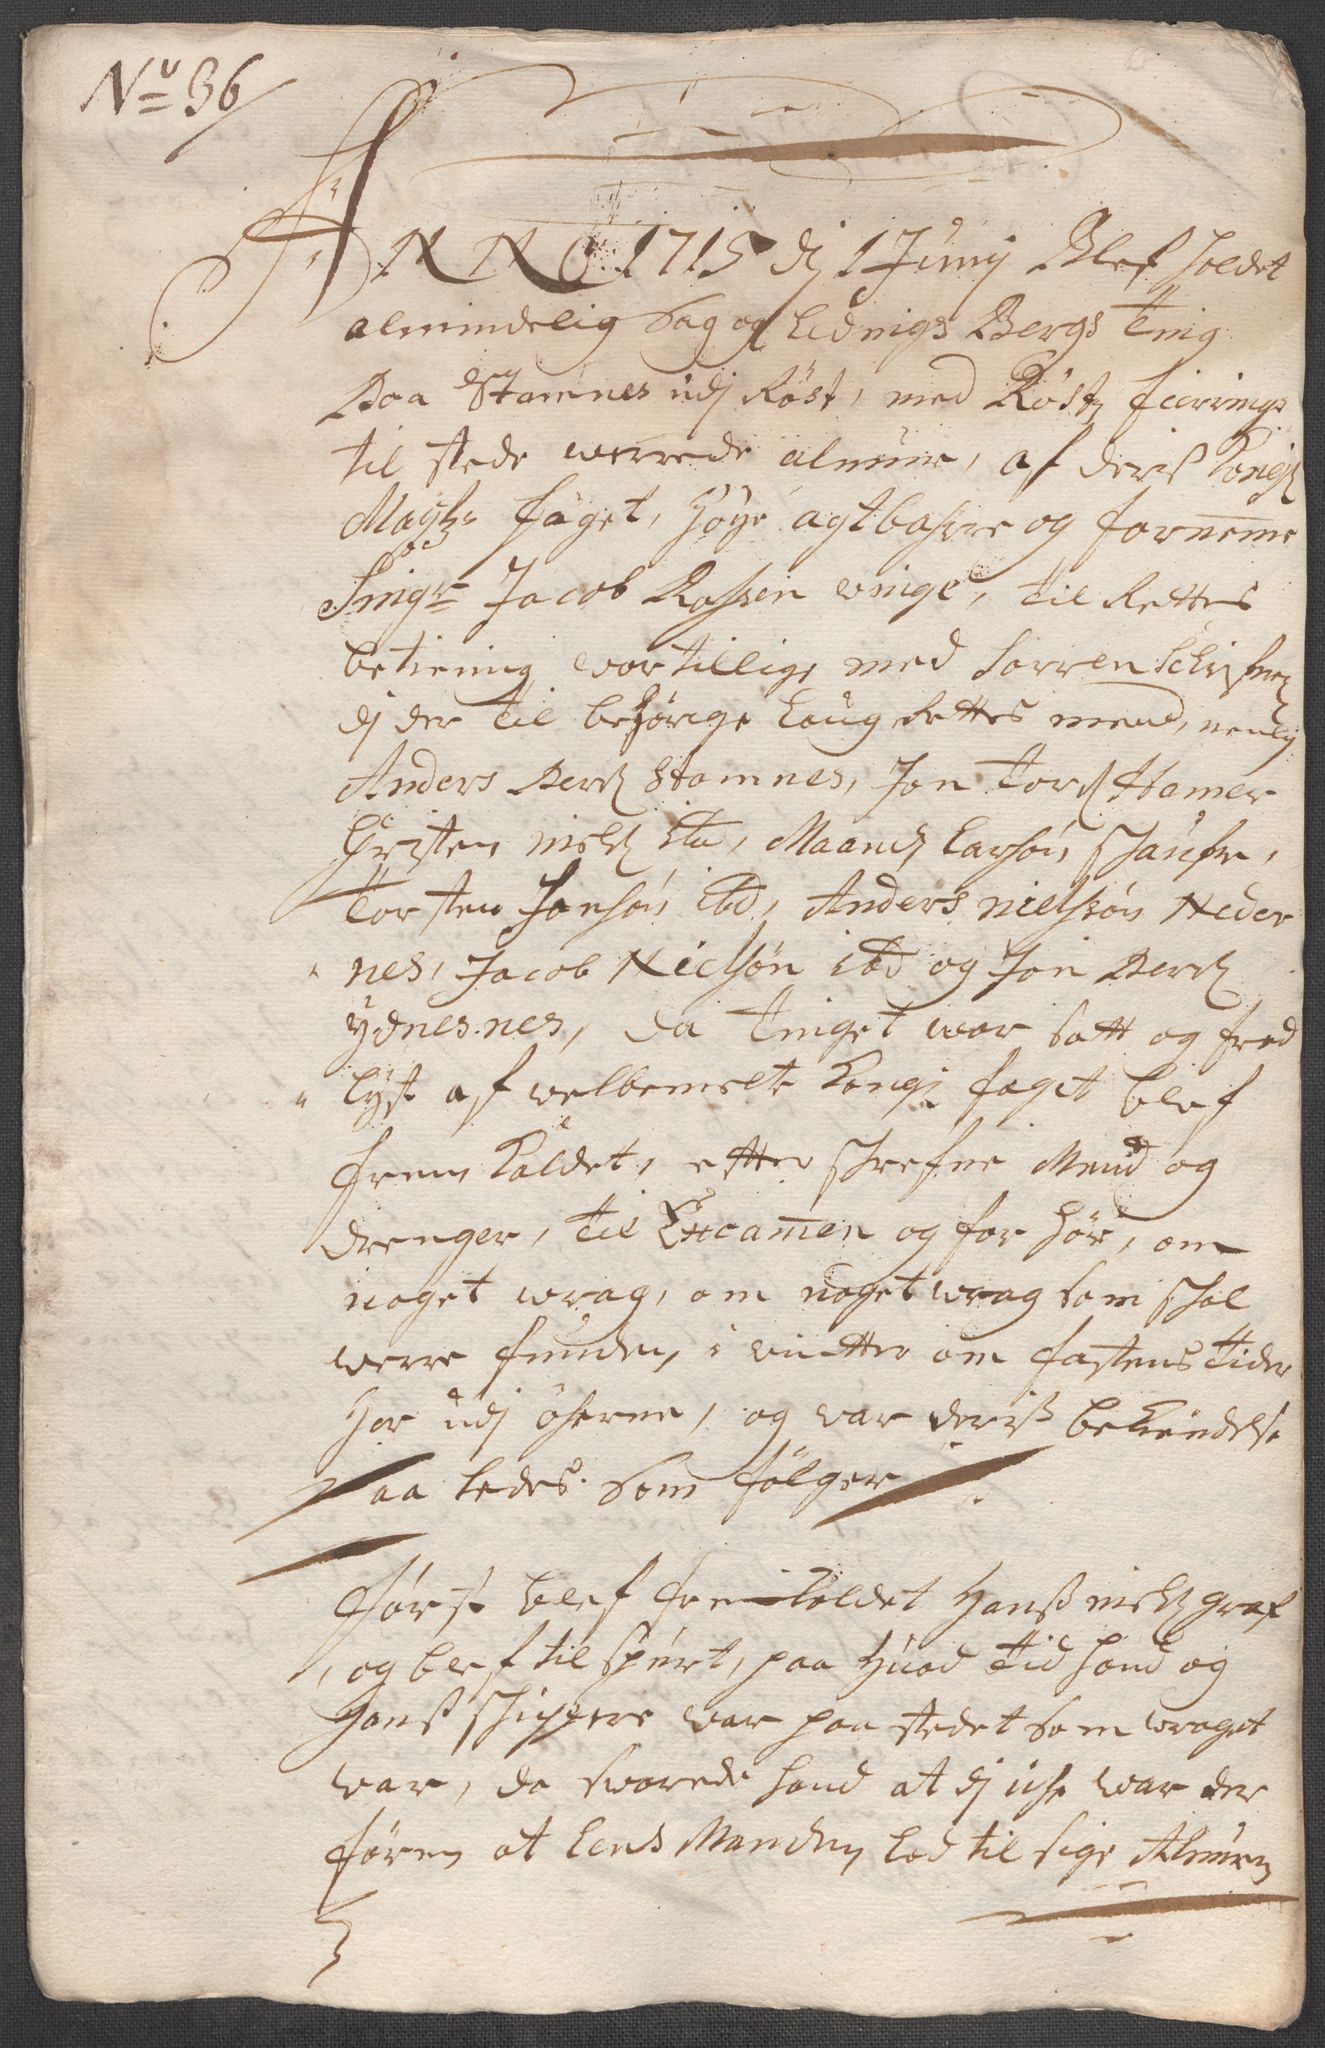 No 36
ANNO 1715 dj 1 Junij Blef holdet
almindelig Sag og Ledings Bergs Ting
Paa Stamnes udj Röst, med Röstz fierings
til stede werrede almue, af deris Kongl
Maytz foget, Höye agtbahre og fornemme
Sr Jacob Rossen vinge, til Rettes
betiening war tillige med Sorren Schrifuer
dj der til behörige Laug Rettes mend, nemlig
Anders Perß Stamnes, Jon Torß Hamer
Christen nielß ibd, Maans Larsön
Torsten Jonsön ibd, Anders nielssön Neder
nes, Jacob Nielsön ibd og Jon Perß
ydnesnes, da tinget war satt og fred
lyst af welbemelte Kongl foget blef
frem Kaldet, efter schrefne Mend og
drenger, til Excamen og for hör, om
noget wrag, om noget wrag som schal
werre funden, i vintter om fastens tider
Her udj öherne, og var deris bekiendelse
saa ledes som fölger
först blef frem Kaldet Hanß nielß graf
og blef til spurt, paa Huad tid hand og
Hanß schippere var paa stedet som wraget
var, da svarede hand at dj iche war der
fören at Lens Manden lod til sige Almuen